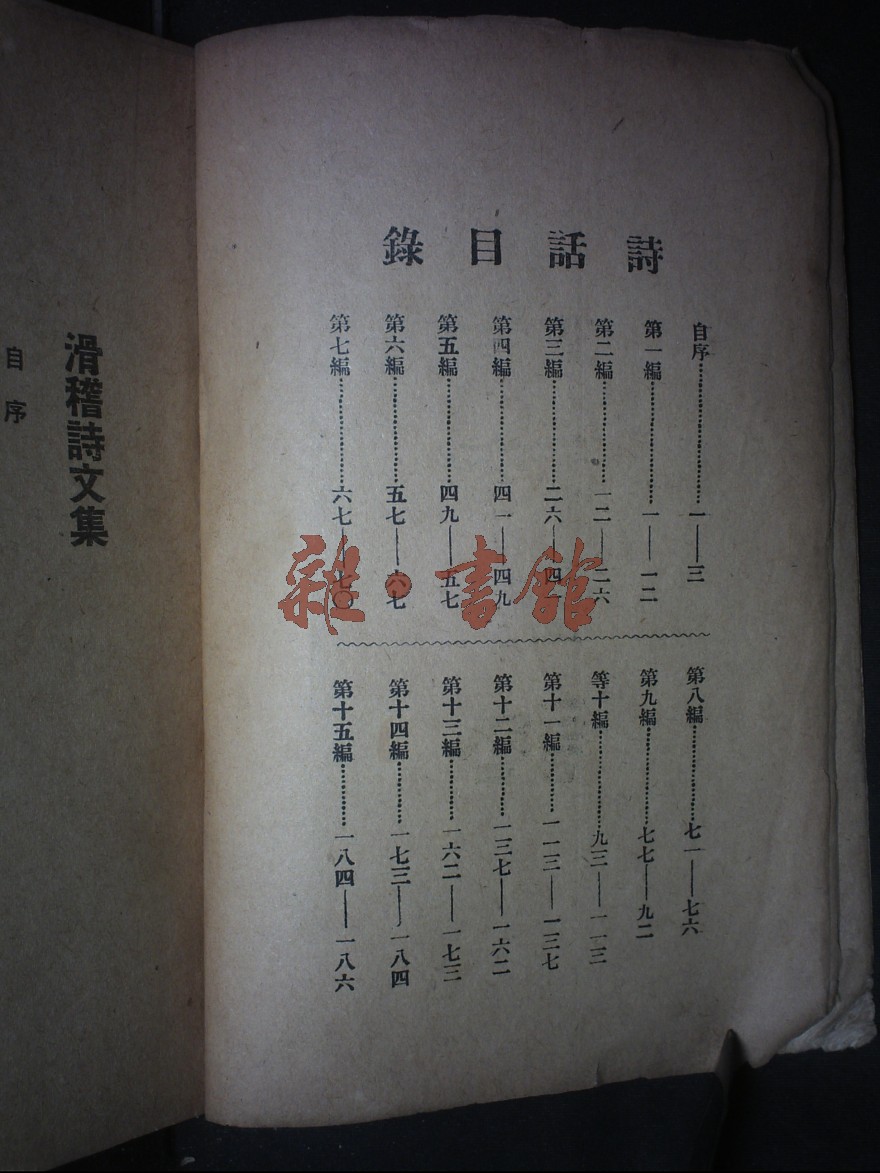 詩話目錄
自序…………一——三
第一編…………一——一二
第二編…………一二——二六
第三編…………二六——四
第四編…………四一——四九
第五編…………四九——五七
第六編…………五七——六七
第七編…………六七——七〇
第八編…………七一——七六
第九編…………七七——九二
等十編…………九三——一一三
第十一編…………一一三——一三七
第十二編…………一三七——一六二
第十三編…………一六二——一七三
第十四編…………一七三——一八四
第十五編…………一八四——一八六
滑稽詩文集
自序
雜·書館